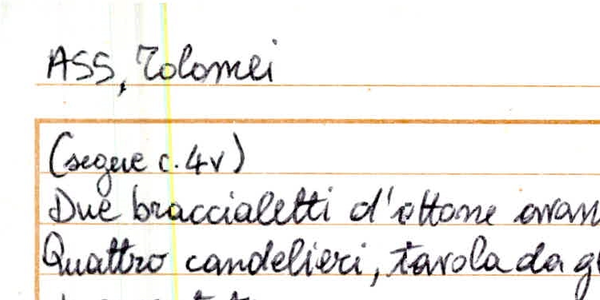 ASS, Tolomei
(segue c. 4v)
Due braccialetti d'ottone
Quattro candelieri, tavola da